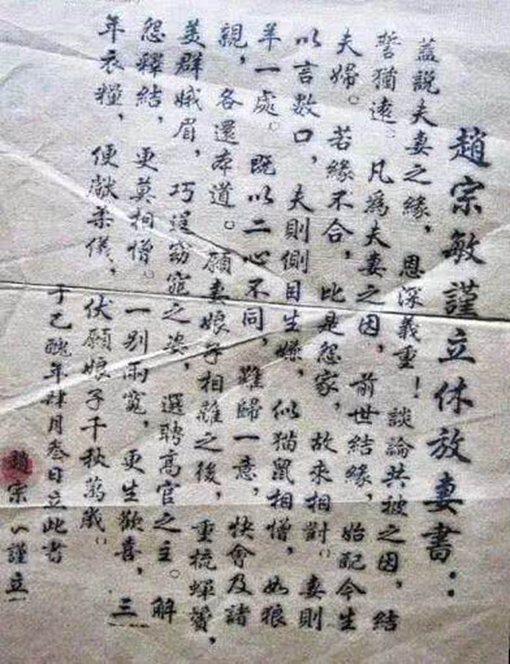 趙宗敏謹立休放妻書：
蓋說夫妻之緣，恩深義重！談論共被之因，結
誓猶遠。凡為夫妻之因，前世結緣，始配今生
夫婦。若緣不合，比是怨家，故來相對。妻則
以言數口，夫則側目生嫌，似猫鼠相憎，如狼
羊一處。既以二心不同，難歸一意，快會及諸
親，各還本道。願妻娘子相離之後，重梳蟬鬢，
美群娥眉，巧逞窈窕之姿，選聘高官之主。解
怨釋結，更莫相憎。一别兩寬，更生歡喜，三
年衣糧，便獻柔儀，伏願娘子千秋萬歲。
于乙醜年肆月叁日立此書
趙宗 謹立